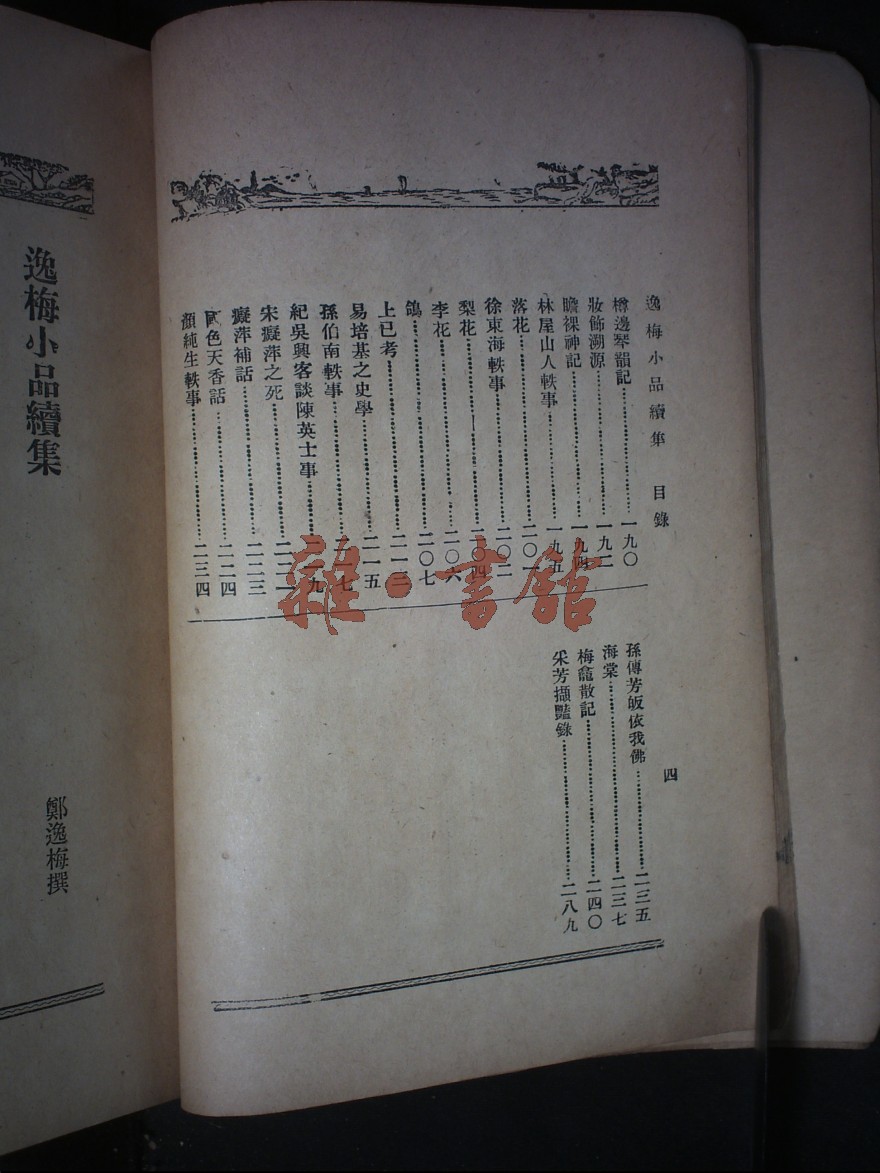 逸梅小品續集　目錄
四
樽邊琴韻記……一九〇
妝飾溯源……一九二
瞻裸神記……一九四
林屋山人軼事……一九五
落花……二〇一
徐東海軼事……二〇二
梨花……二〇四
李花……二〇六
鴿……二〇七
上已考……二一三
易培基之史學……二一五
孫伯南軼事……二一七
紀吳興客談陳英士事……二一九
宋癡萍之死……二二一
癡萍補話……二二三
國色天香話……二二四
顏純生軼事……二三四
孫傳芳皈依我佛……二三五
海棠……二三七
梅龕散記……二四〇
采芳擷豔錄……二八九
逸梅小品續集
鄭逸梅撰
雜·書館